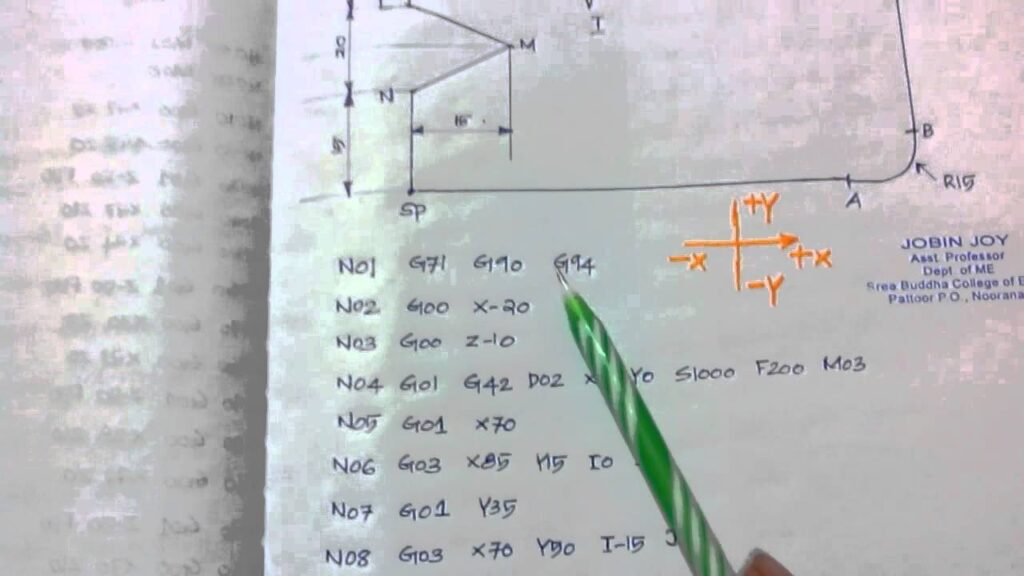 20
M
I
N
15
B
R15
A
SP
+Y
-X +X
-Y
JOBIN JOY
Asst. Professor
Dept. of ME
Sree Buddha College of E
Pattoor P.O., Noorana
N01 G71 G90 G94
N02 G00 X-20
N03 G00 Z-10
N04 G01 G42 D02 X Y0 S1000 F200 M03
N05 G01 X70
N06 G03 X85 Y15 I0
N07 G01 Y35
N08 G03 X70 Y50 I-15 J